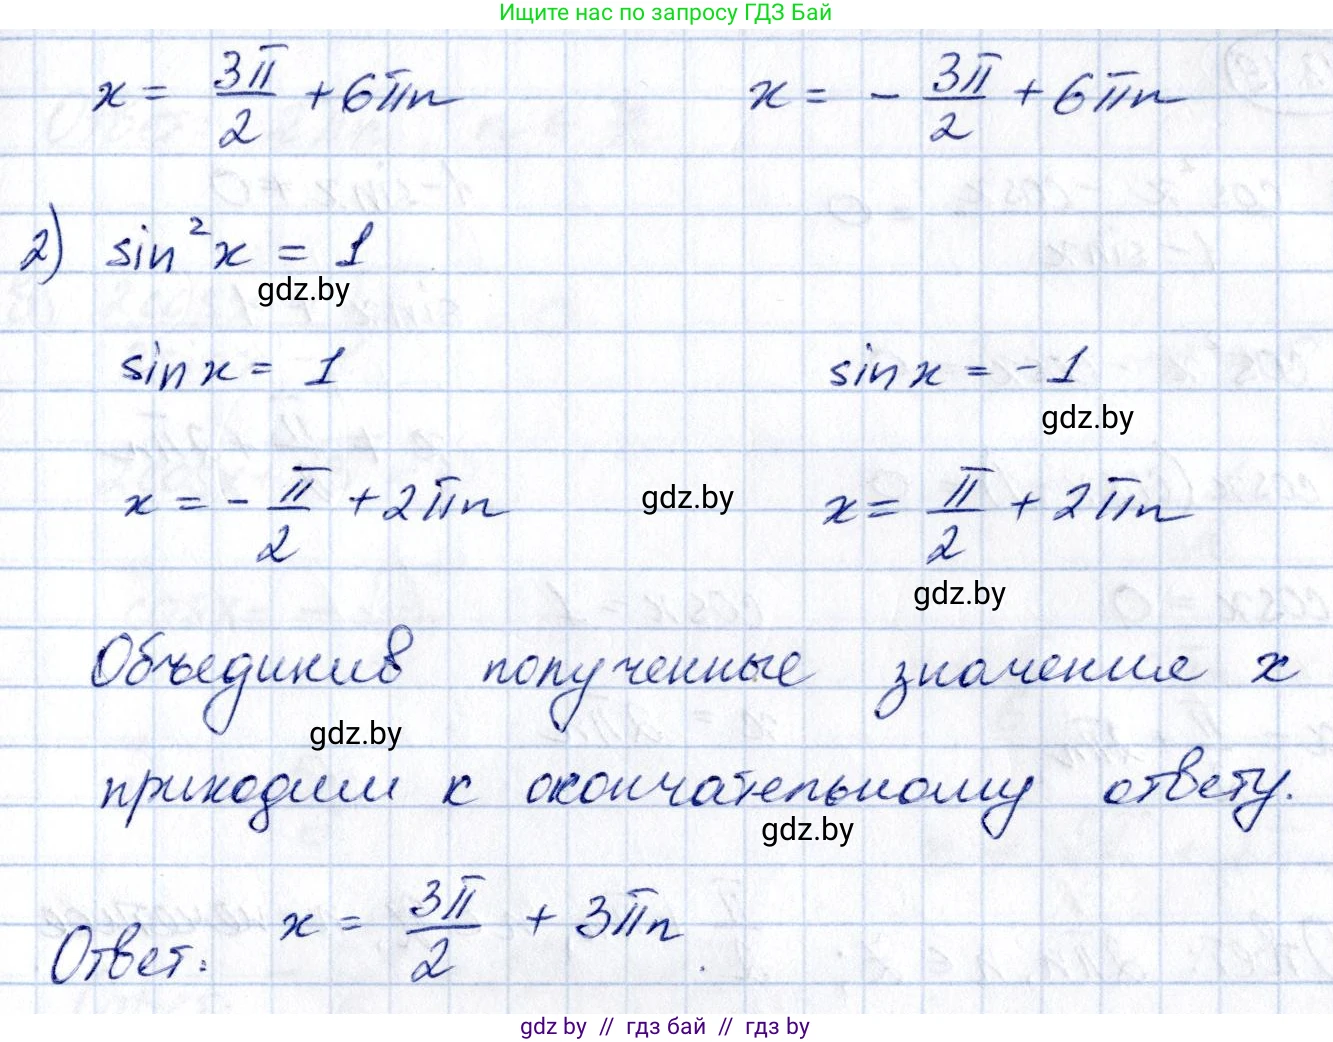 Ищите нас по запросу ГДЗ Бай
x = 3π/2 + 6πn    x = - 3π/2 + 6πn
2) sin²x = 1
gdz.by
sin x = 1    sin x = -1
gdz.by
x = - π/2 + 2πn    gdz.by    x = π/2 + 2πn
gdz.by
Объединив полученные значения x
gdz.by
приходим к окончательному ответу.
gdz.by
Ответ: x = 3π/2 + 3πn.
gdz by // гдз бай // гдз by